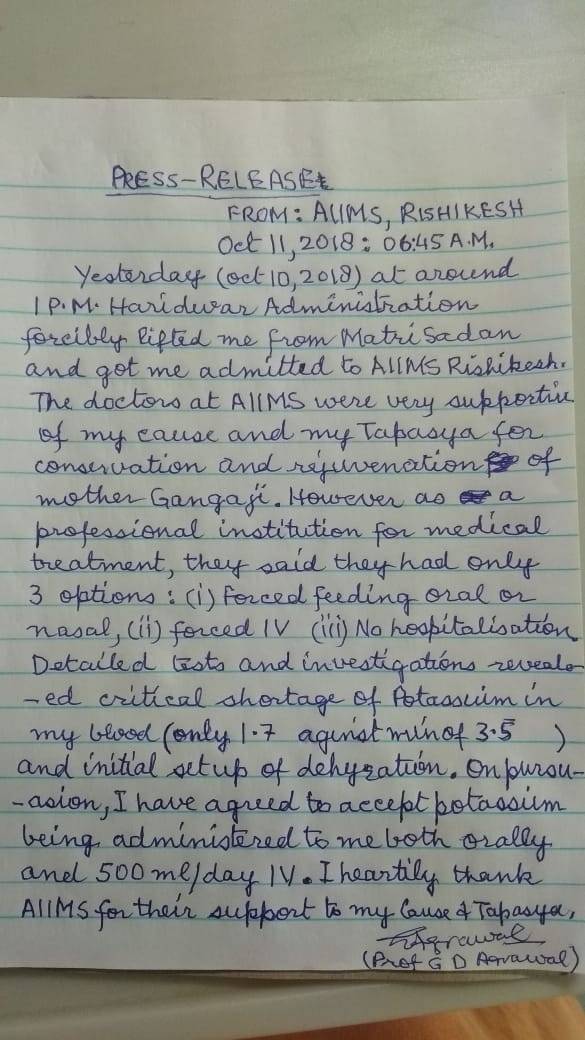 PRESS-RELEASE:
FROM: AIIMS, RISHIKESH
Oct 11, 2018: 06:45 A.M.
Yesterday (oct 10, 2018) at around
1 P.M. Haridwar Administration
forcibly lifted me from Matri Sadan
and got me admitted to AIIMS Rishikesh.
The doctors at AIIMS were very supportive
of my cause and my Tapasya for
conservation and rejuvenation of
mother Gangaji. However as a
professional institution for medical
treatment, they said they had only
3 options: (i) Forced feeding oral or
nasal, (ii) forced IV (iii) No hospitalisation.
Detailed tests and investigations reveale-
-ed critical shortage of Potassuim in
my blood (only 1.7 aginst min of 3.5 )
and initial setup of dehyration. On pursu-
-asion, I have agreed to accept potassium
being administered to me both orally
and 500 ml/day IV. I heartily thank
AIIMS for their support to my Cause & Tapasya.
Agrawal
(Prof G D Agrawal)